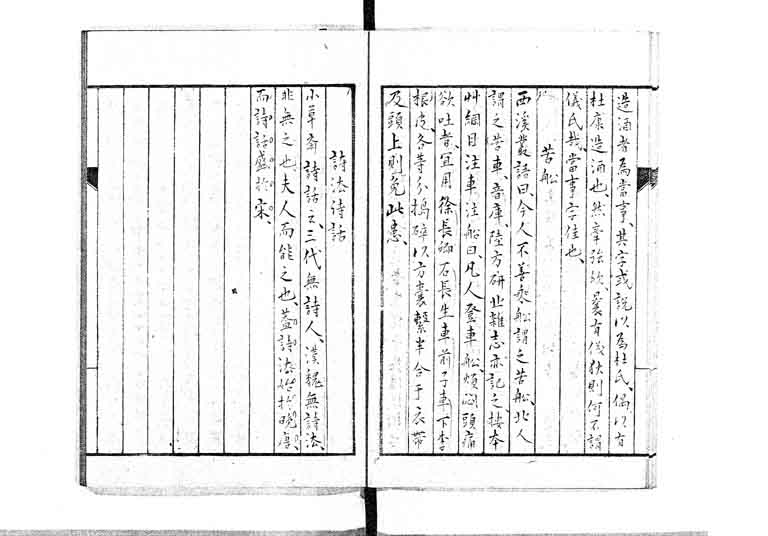 造酒者為當事、其字或說以為杜氏、偶以有
杜康造酒也、然牽強欤、曩有儀狄則何不謂
儀氏哉、當事字佳也、
苦船
西溪叢話曰、今人不善乘船謂之苦船、北人
謂之苦車、音庫、陸方研北雜志亦記之、按本
艸綱目注車注船曰、凡人登車船、煩悶頭痛
欲吐者、宜用徐長卿石長生車前子車下李
根皮、各等分搗碎、以方囊繫半合于衣帶
及頭上則免此患、
詩法詩話
小草斎詩話云、三代無詩人、漢魏無詩法、
非無之也、夫人而能之也、蓋詩法始於晚唐、
而詩話盛於宋、